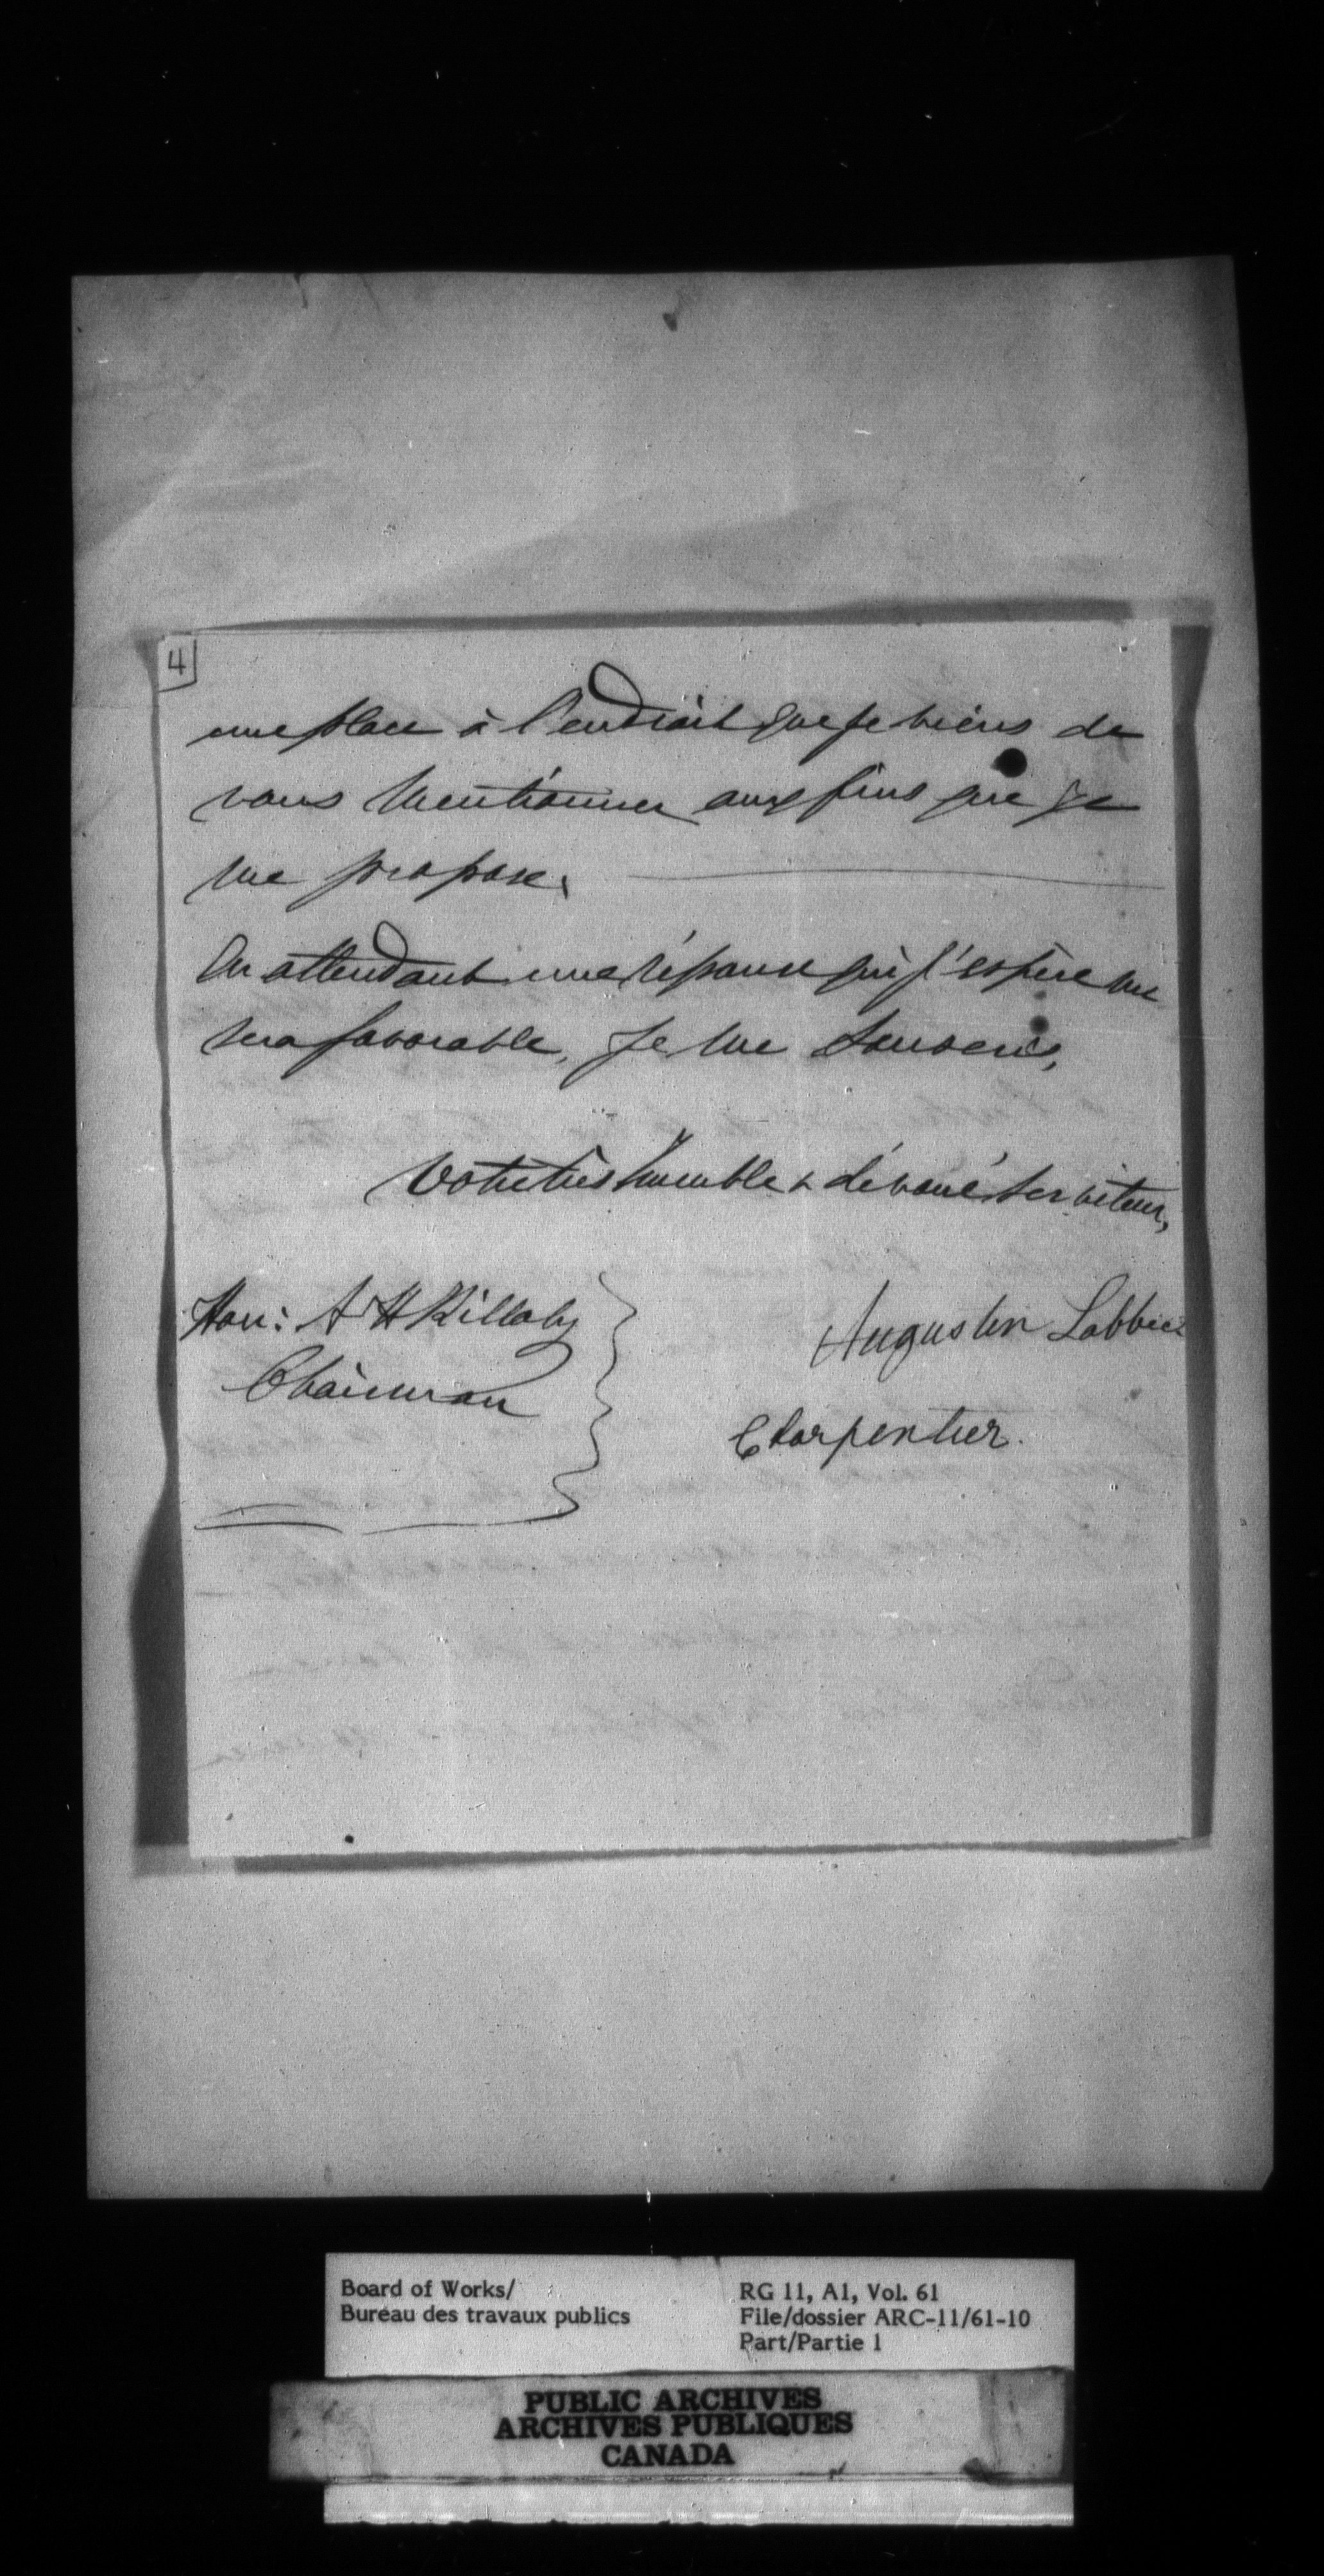 4
une place à l'endroit que je viens de
vous mentionner aux fins que je
me propose.
En attendant une réponse qui j'espère me
sera favorable, Je me souscris,
Votre très humble & dévoué serviteur,
Hon: H H Killaly
Chairman
Augustin Labbée
Charpentier.
Board of Works/
Bureau des travaux publics
RG 11, A1, Vol. 61
File/dossier ARC-11/61-10
Part/Partie 1
PUBLIC ARCHIVES
ARCHIVES PUBLIQUES
CANADA